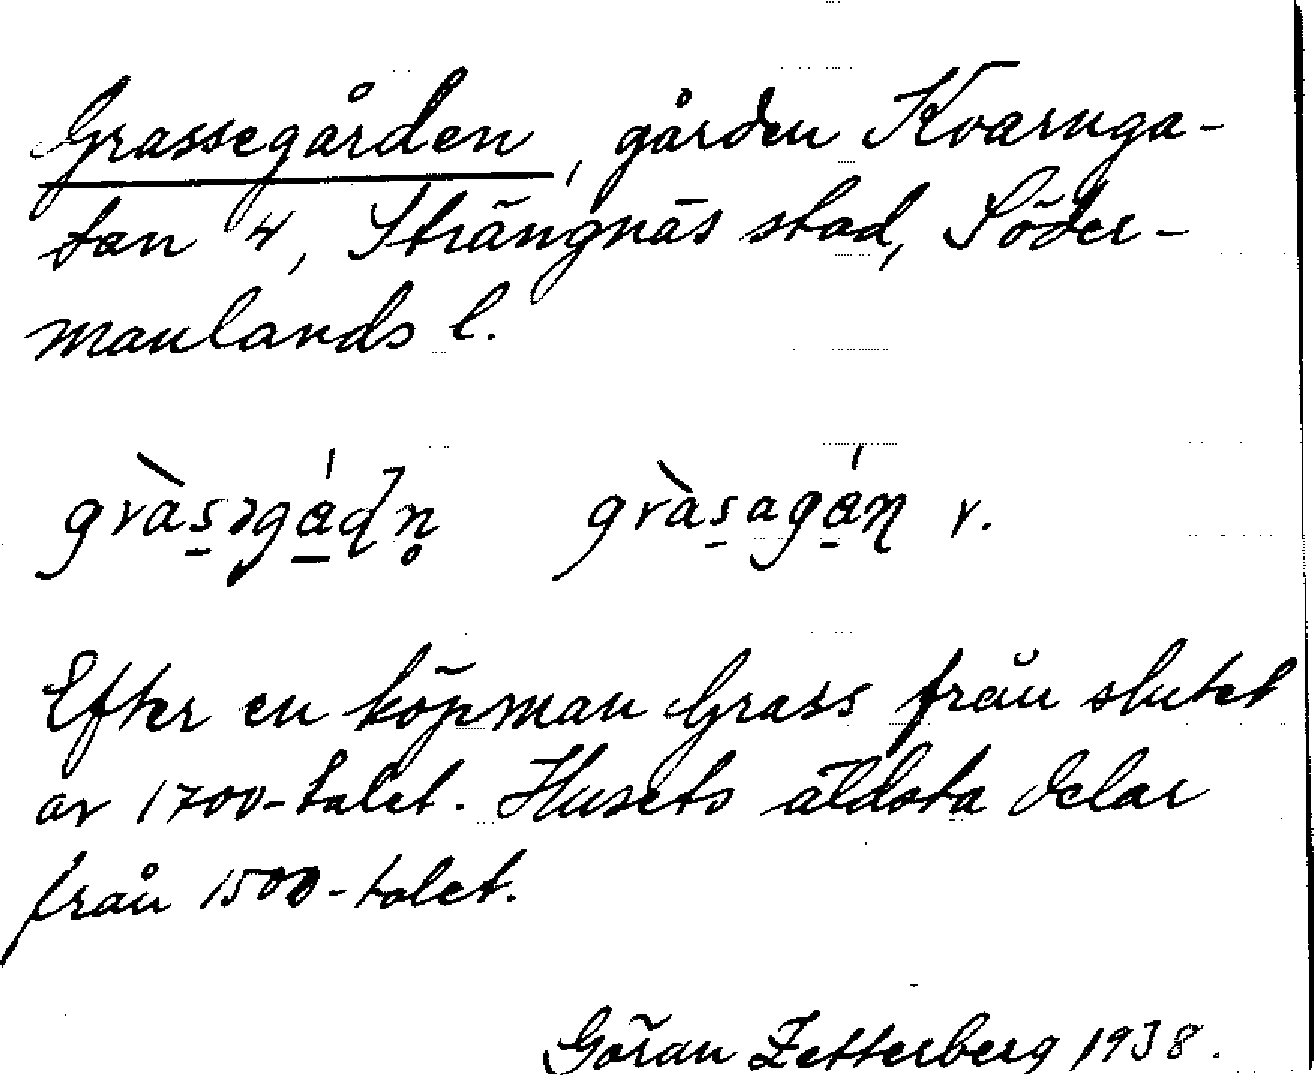 Grassegården, gården Kvarnga-
tan 4, Strängnäs stad, Söder-
manlands l.
gràsəgádn̥ gràsagáɳ r.
Efter en köpman Grass från slutet
av 1700-talet. Husets äldsta delar
från 1500-talet.
Göran Zetterberg 1938.